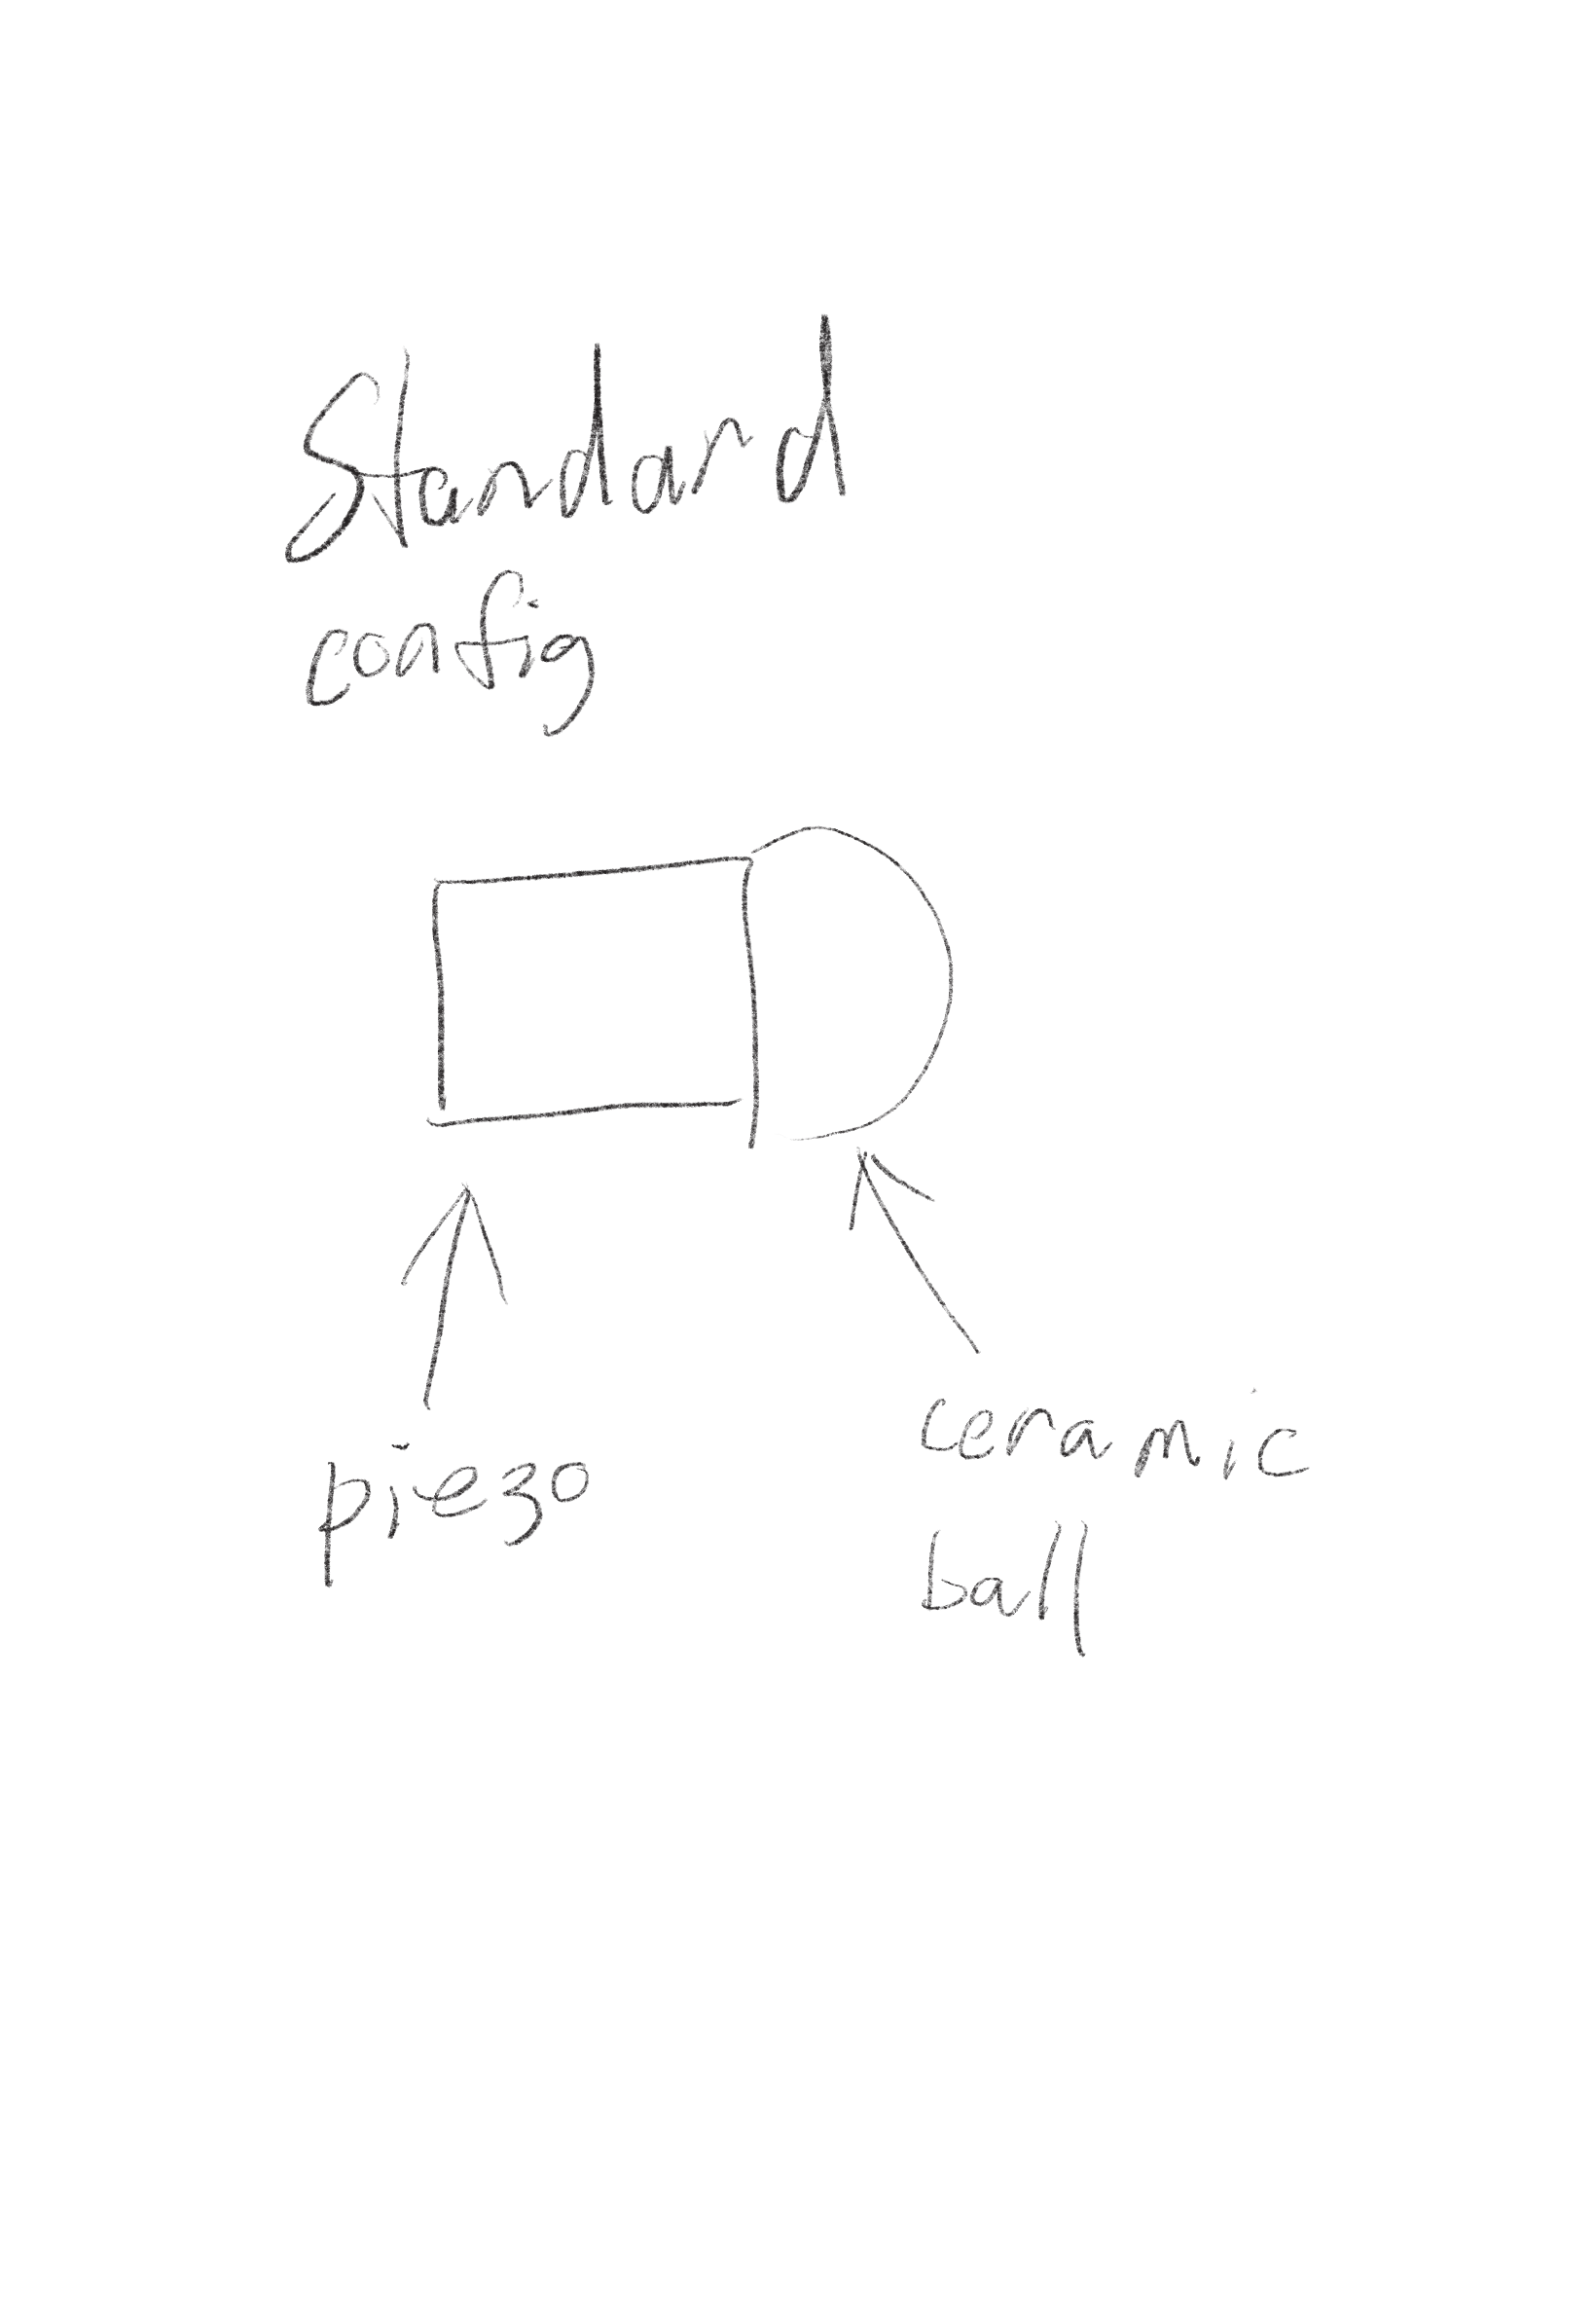 Standard
config
piezo
ceramic
ball